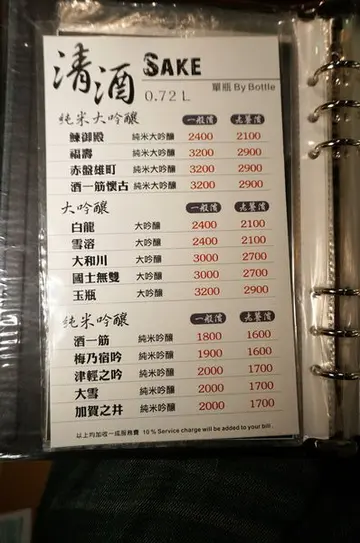 清酒 SAKE
0.72 L 單瓶 By Bottle
純米大吟釀 一般價 老饕價
鰊御殿 純米大吟釀 2400 2100
福壽 純米大吟釀 3200 2900
赤盤雄町 純米大吟釀 3200 2900
酒一筋懷古 純米大吟釀 3200 2900
大吟釀 一般價 老饕價
白龍 大吟釀 2400 2100
雪溶 大吟釀 2400 2100
大和川 大吟釀 3000 2700
國士無雙 大吟釀 3000 2700
玉瓶 大吟釀 3200 2900
純米吟釀 一般價 老饕價
酒一筋 純米吟釀 1800 1600
梅乃宿吟 純米吟釀 1900 1600
津輕之吟 純米吟釀 2000 1700
大雪 純米吟釀 2000 1700
加賀之井 純米吟釀 2000 1700
以上均加收一成服務費 10% Service charge will be added to your bill .